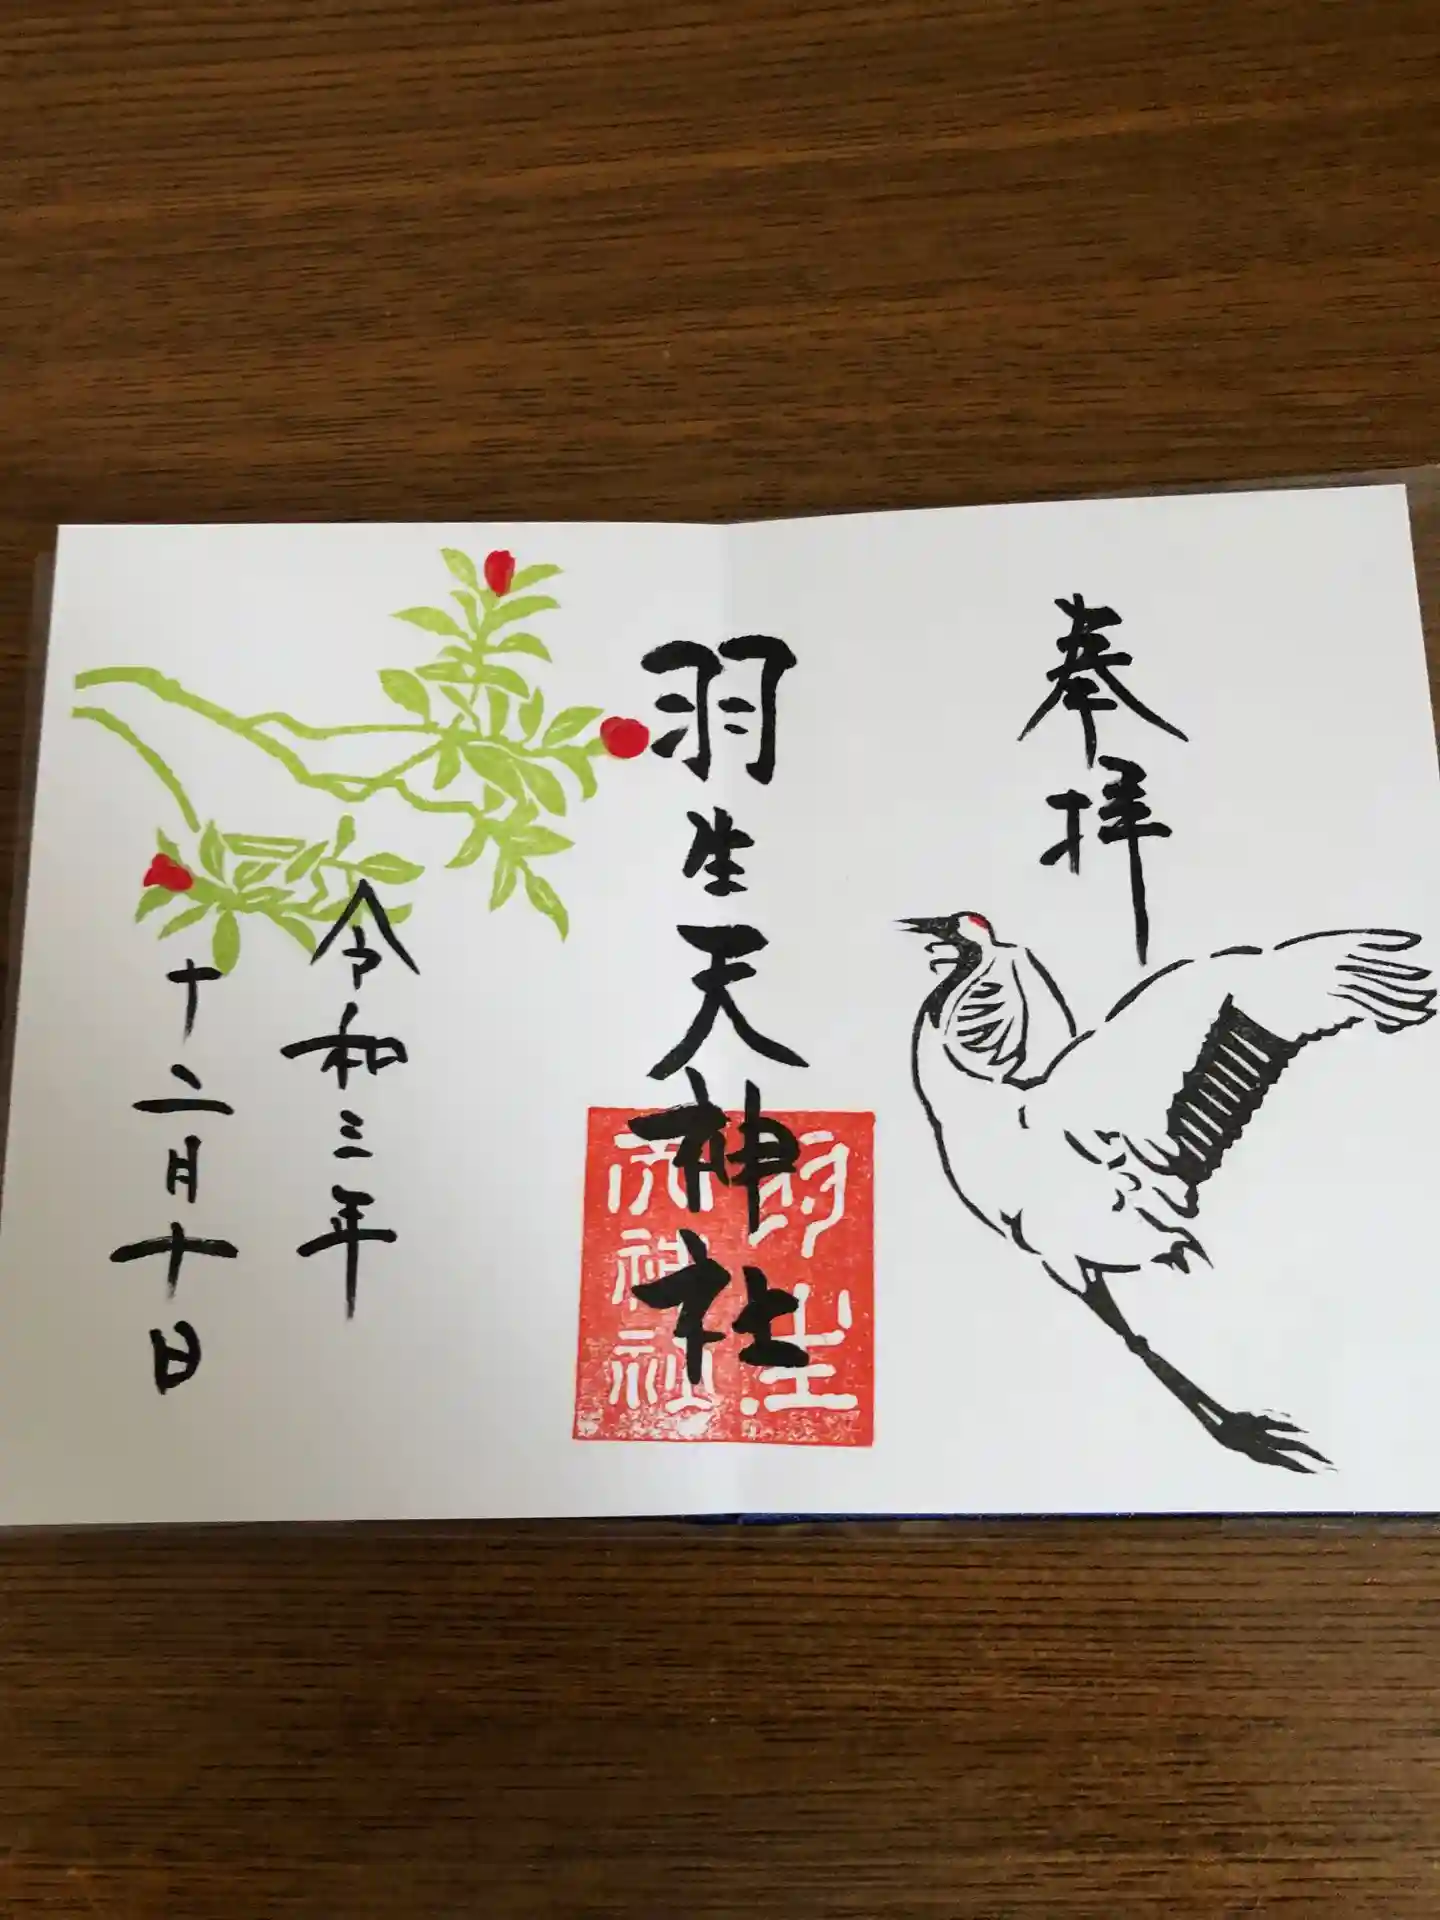 奉拝
羽生天神社
羽生
天神社
令和三年
十二月十日